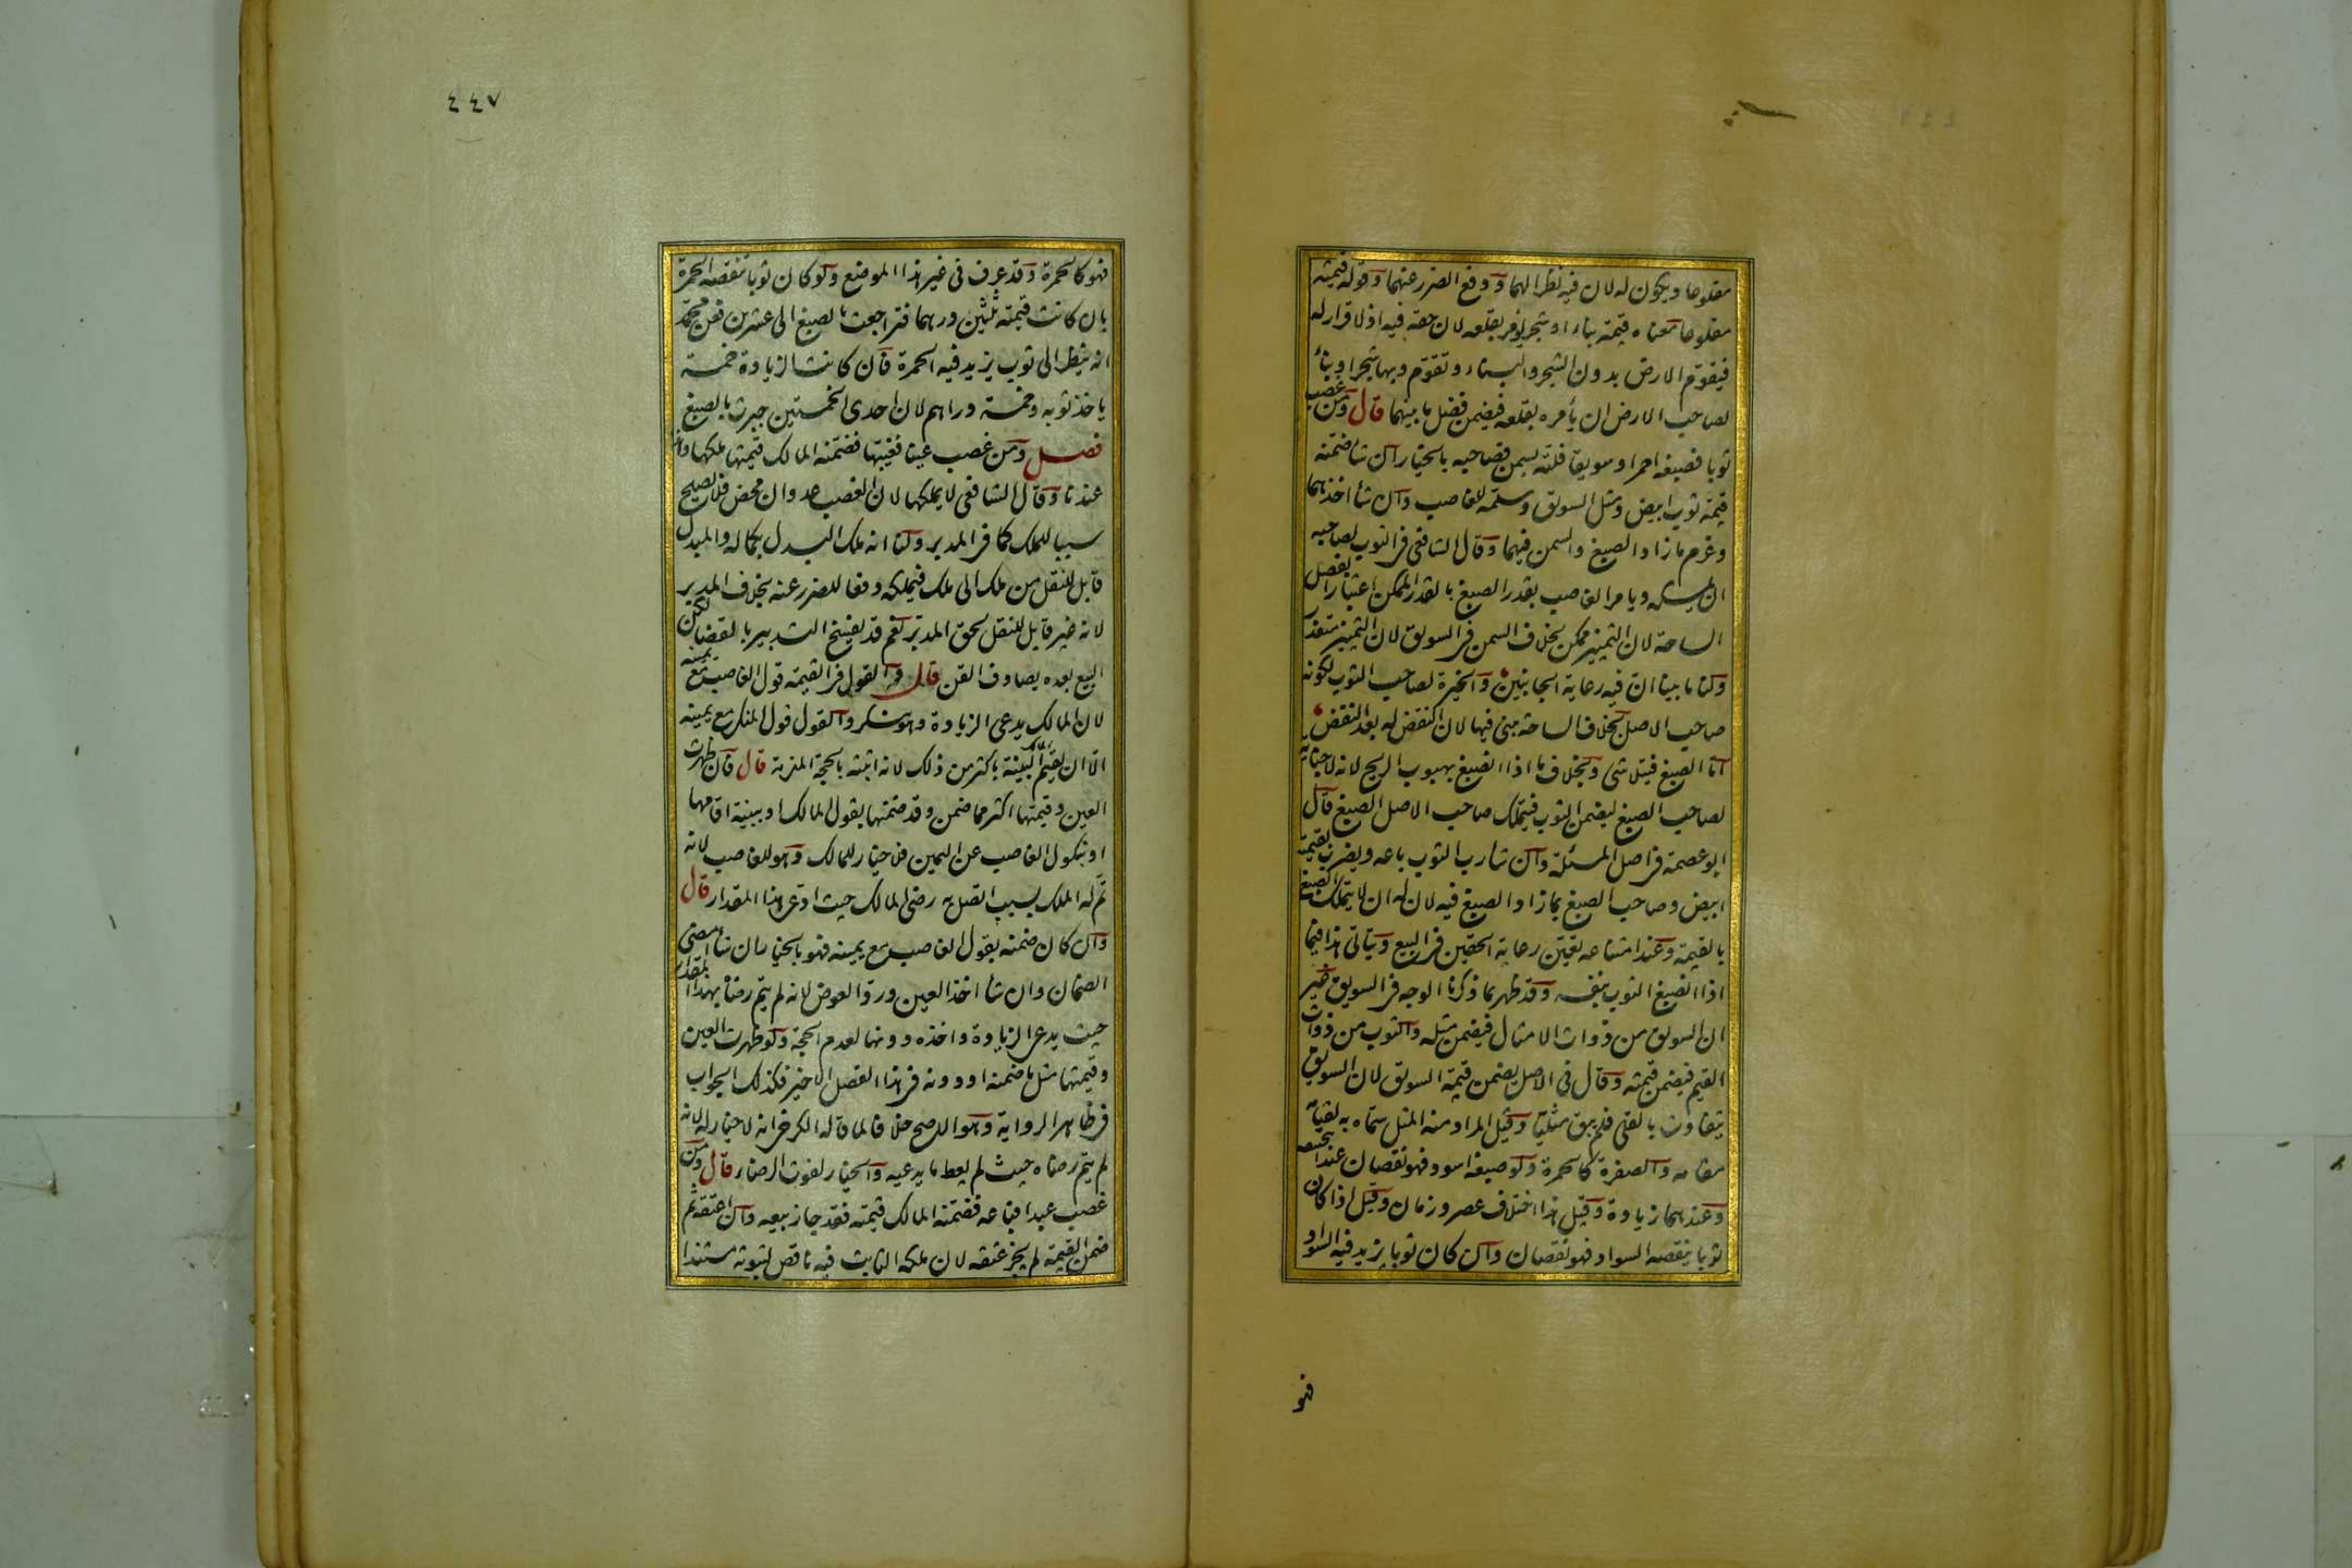 مقلوعا ويكون له لان فيه نظرا لهما ودفع الضرر عنهما وقوله قيمته
مقلوعا معناه قيمته بناء او شجر يؤمر بقلعه لان حقه فيه اذ لا قرار له
فيقوم الارض بدون الشجر والبناء وتقوم وبها شجر او بناء
لصاحب الارض ان يأمره بقلعه فيضمن فضل ما بينهما قال ومن غصب
ثوبا فصبغه احمر او سويقا فلته بسمن فصاحبه بالخيار ان شاء ضمنه
قيمة ثوب ابيض ومثل السويق وسلمه للغاصب وان شاء اخذهما
وغرم ما زاد الصبغ والسمن فيهما وقال الشافعي في الثوب لصاحبه
ان يمسكه ويامر الغاصب بقدر الصبغ بالقدر الممكن اعتبارا بفصل
الساحة لان التمييز ممكن بخلاف السمن في السويق لان التمييز متعذر
ولنا ما بينا ان فيه رعاية الجانبين والخيرة لصاحب الثوب لكونه
صاحب الاصل بخلاف الساحة يبنى فيها لان النقض له بعد النقض
اما الصبغ فيتلاشى وبخلاف ما اذا انصبغ بهبوب الريح لانه لا جناية
لصاحب الصبغ ليضمن الثوب فيتملك صاحب الاصل الصبغ قال
ابو عصمة في اصل المسئلة وان شاء رب الثوب باعه ويضرب بقيمته
ابيض وصاحب الصبغ بما زاد الصبغ فيه لان له ان لا يتملك الصبغ
بالقيمة وعند امتناعه تعين رعاية الحقين في البيع ويتاتى هذا فيما
اذا انصبغ الثوب بنفسه وقد ظهر بما ذكرنا الوجه في السويق غير
ان السويق من ذوات الامثال فيضمن مثله والثوب من ذوات
القيم فيضمن قيمته وقال في الاصل يضمن قيمة السويق لان السويق
يتفاوت بالقلي فلم يبق مثليا وقيل المراد منه المثل سماه به لقيامه
مقامه والصفرة كالحمرة ولو صبغه اسود فهو نقصان عند ابي حنيفه
وعندهما زيادة وقيل هذا اختلاف عصر وزمان وقيل اذا كان
ثوبا ينقصه السواد فهو نقصان وان كان ثوبا يزيد فيه السواد
فهو
٤٤٧
فهو كالحمرة وقد عرف في غير هذا الموضع ولو كان ثوبا تنقصه الحمرة
بان كانت قيمته ثلثين درهما فتراجعت بالصبغ الى عشرين فعن محمد
انه ينظر الى ثوب يزيد فيه الحمرة فان كانت الزيادة خمسة
ياخذ ثوبه وخمسة دراهم لان احدى الخمستين جبرت بالصبغ
فصل ومن غصب عينا فغيبها فضمنه المالك قيمتها ملكها وهذا
عندنا وقال الشافعي لا يملكها لان الغصب عدوان محض فلا يصلح
سببا للملك كما في المدبر ولنا انه ملك البدل بكماله والمبدل
قابل للنقل من ملك الى ملك فيملكه دفعا للضرر عنه بخلاف المدبر
لانه غير قابل للنقل لحق المدبر نعم قد يفسخ التدبير بالقضا لكن
البيع بعده يصادف القن قال والقول في القيمة قول الغاصب مع يمينه
لان المالك يدعي الزيادة وهو ينكر والقول قول المنكر مع يمينه
الا ان يقيم المالك البينة باكثر من ذلك لانه اثبته بالحجة الملزمة قال فان ظهرت
العين وقيمتها اكثر مما ضمن وقد ضمنها بقول المالك او ببينة اقامها
او بنكول الغاصب عن اليمين فلا خيار للمالك وهو للغاصب لانه
تم له الملك بسبب اتصل به رضى المالك حيث ادعى هذا المقدار قال
وان كان ضمنه بقول الغاصب مع يمينه فهو بالخيار ان شاء امضى
الضمان وان شاء اخذ العين ورد العوض لانه لم يتم رضاه بهذا المقدار
حيث يدعي الزيادة واخذه دونها لعدم الحجة ولو ظهرت العين
وقيمتها مثل ما ضمنه او دونه في هذا الفصل الاخير فكذلك الجواب
في ظاهر الرواية وهو الاصح خلافا لما قاله الكرخي انه لا خيار له لانه
لم يتم رضاه حيث لم يعط ما يدعيه والخيار لفوت الرضاء قال ومن
غصب عبدا فباعه فضمنه المالك قيمته فقد جاز بيعه وان اعتقه ثم
ضمن القيمة لم يجز عتقه لان ملكه الثابت فيه ناقص لثبوته مستندا